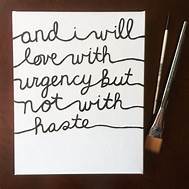 and i will
love with
urgency but
not with
haste